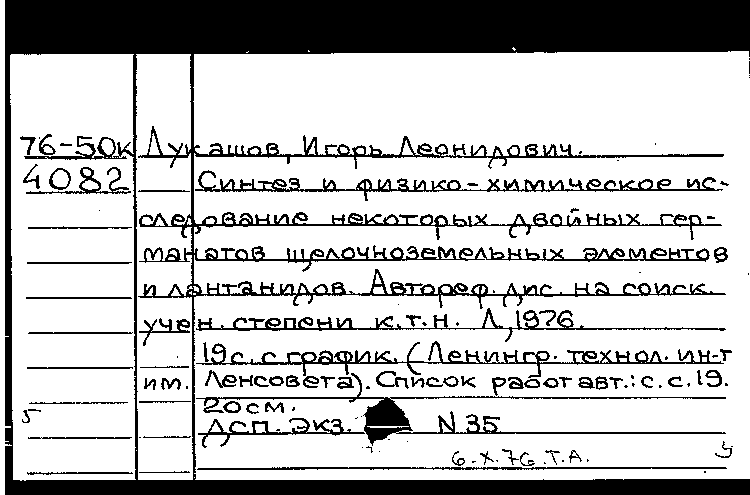 76-50к Лукашов, Игорь Леонидович.
4082 Синтез и физико-химическое ис-
следование некоторых двойных гер-
манатов щелочноземельных элементов
и лантанидов. Автореф. дис. на соиск.
учен. степени к.т.н. Л., 1976.
19с. с график. (Ленингр. технол. ин-т
им. Ленсовета). Список работ авт.: с. с. 19.
20см.
5 ДСП. Экз. N 35
6.X.76.Т.А.